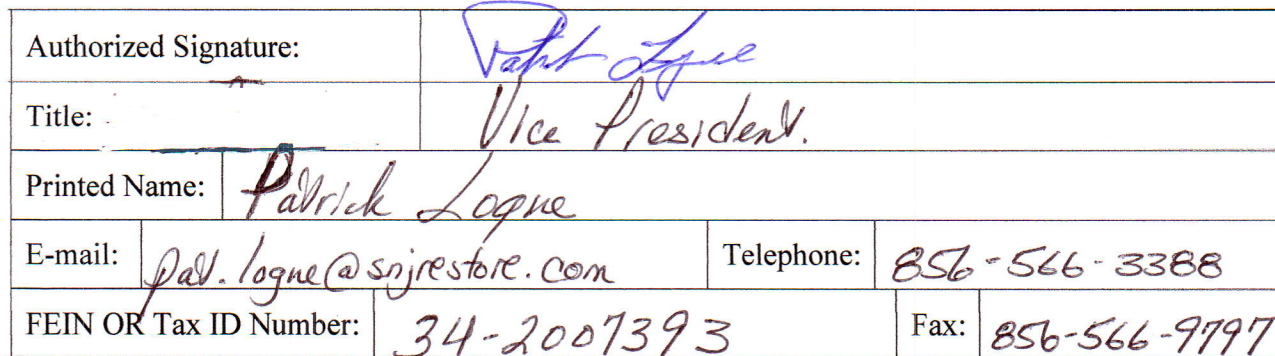 Authorized Signature: Patrick Logue
Title: Vice President.
Printed Name: Patrick Logue
E-mail: pat.logue@snjrestore.com Telephone: 856-566-3388
FEIN OR Tax ID Number: 34-2007393 Fax: 856-566-9797